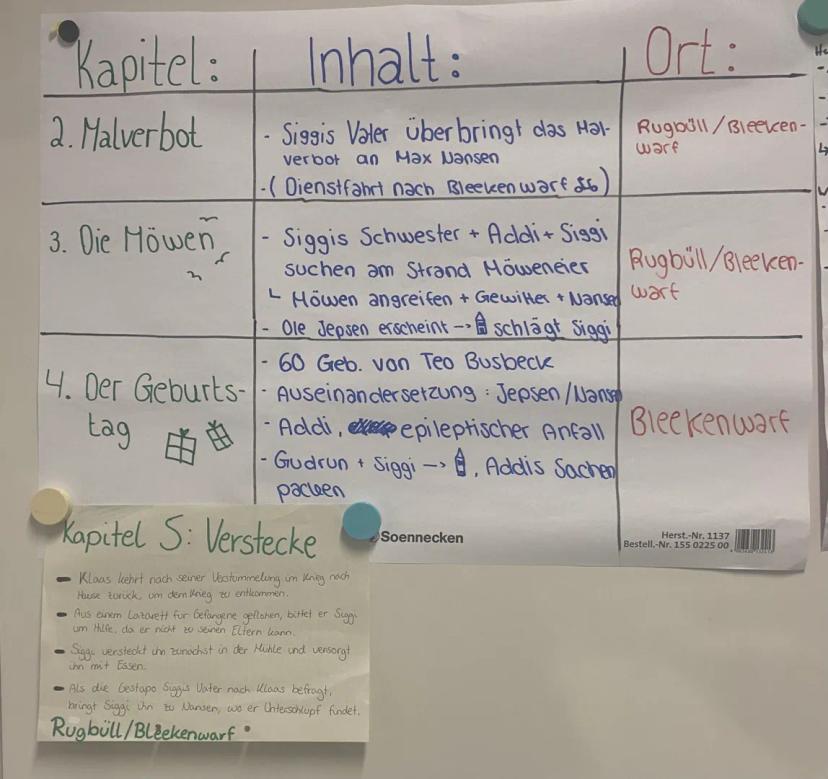 Kapitel:
Inhalt:
Ort:
2. Malverbot
- Siggis Vater überbringt das Mal-
verbot an Max Nansen
- (Dienstfahrt nach Bleekenwarf)
Rugbüll/Bleeken-
warf
3. Die Möwen
- Siggis Schwester + Addi + Siggi
suchen am Strand Möweneier
Möwen angreifen + Gewitter + Nansen
- Ole Jepsen erscheint → schlägt Siggi
Rugbüll/Bleeken-
warf
4. Der Geburts-
tag
- 60 Geb. von Teo Busbeck
- Auseinandersetzung: Jepsen/Nansen
- Addi, epileptischer Anfall
- Gudrun + Siggi → , Addis Sachen
packen
Bleekenwarf
Soennecken
Herst.-Nr. 1137
Bestell.-Nr. 155 0225 00
Kapitel 5: Verstecke
- Klaas kehrt nach seiner Verstümmelung im Krieg nach
Hause zurück, um dem Krieg zu entkommen.
- Aus einem Lazarett für Gefangene geflohen, bittet er Siggi
um Hilfe, da er nicht zu seinen Eltern kann.
- Siggi versteckt ihn zunächst in der Mühle und versorgt
ihn mit Essen.
- Als die Gestapo Siggis Vater nach Klaas befragt,
bringt Siggi ihn zu Nansen, wo er Unterschlupf findet.
Rugbüll/Bleekenwarf